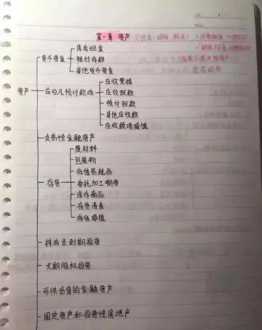 第一章 资产
库存现金
货币资金 银行存款
其他货币资金
应收票据
资产 应收及预付款项 应收账款
预付账款
其他应收款
应收款项减值
交易性金融资产
原材料
包装物
低值易耗品
存货 委托加工物资
库存商品
存货清查
存货减值
持有至到期投资
长期股权投资
可供出售的金融资产
固定资产和投资性房地产